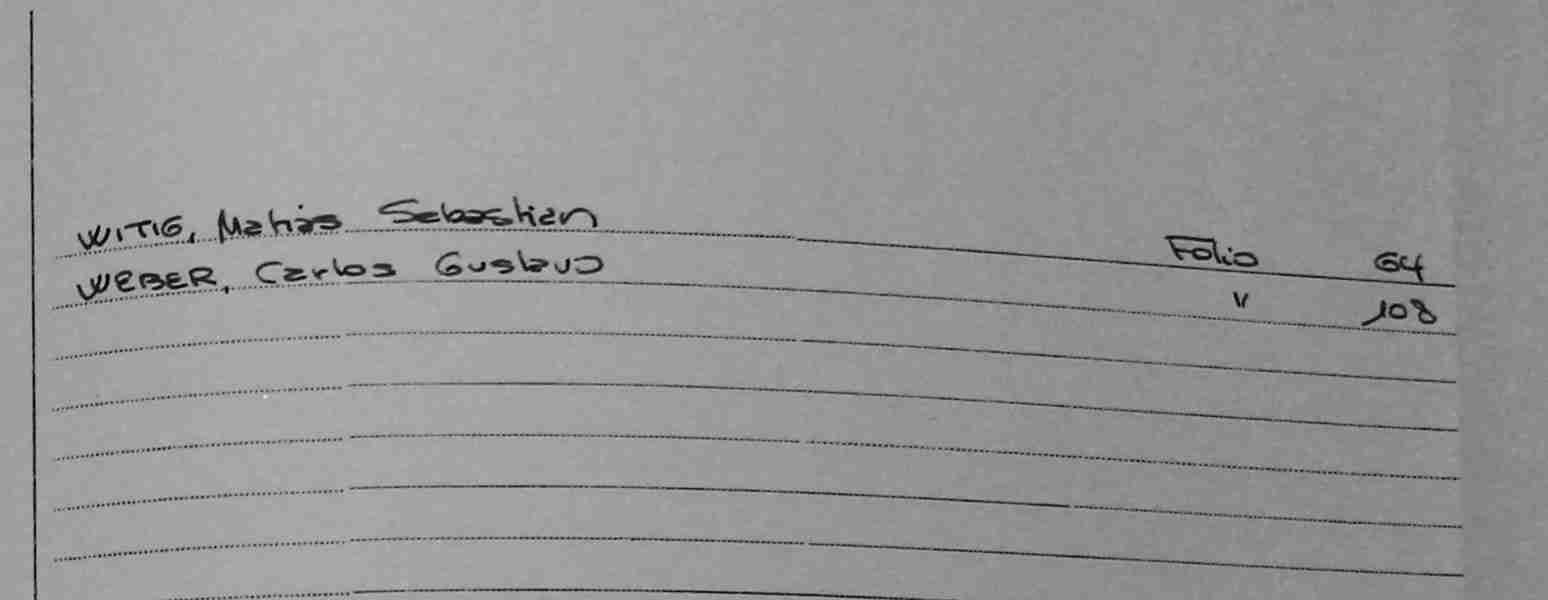 WITIG, Matias Sebastian Folio 64
WEBER, Carlos Gustavo " 108